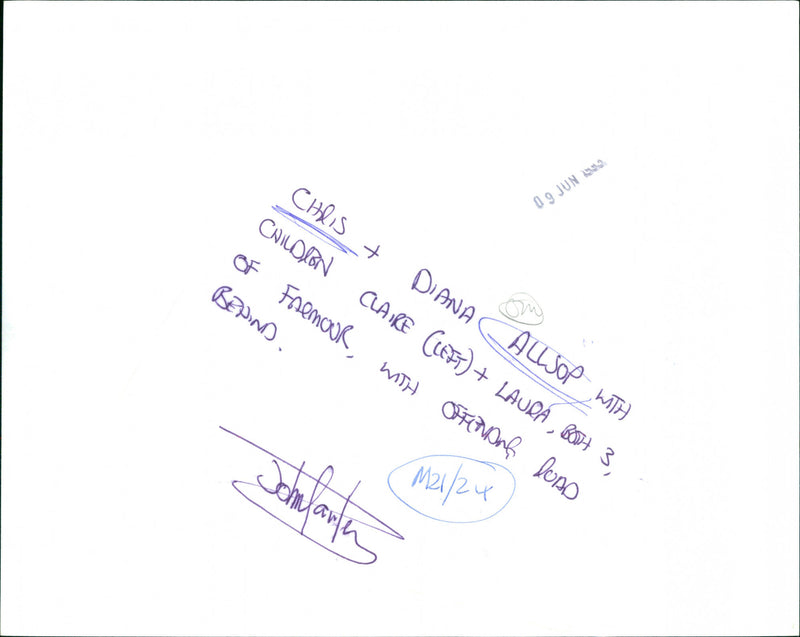 09 JUN
CHRIS + DIANA ALLSOP, WITH
CHILDREN CLAIRE (LEFT) + LAURA, BOTH 3,
OF FARMOOR, WITH OFFENDING ROAD
BEHIND.
M21/24